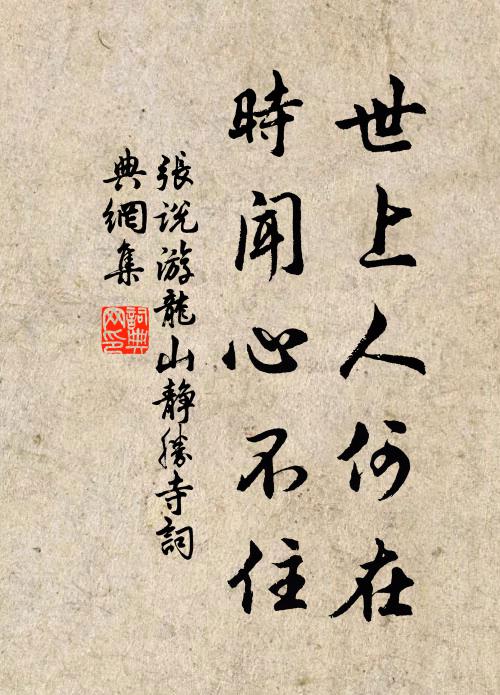 世上人何在
時聞心不住
張說游龍山靜勝寺詞
典網集
詞典
网印